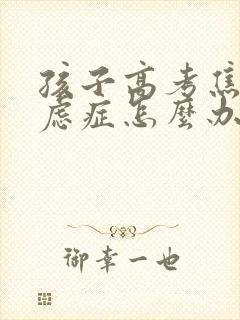 孩子高考焦
虑症怎麽办
御幸一也